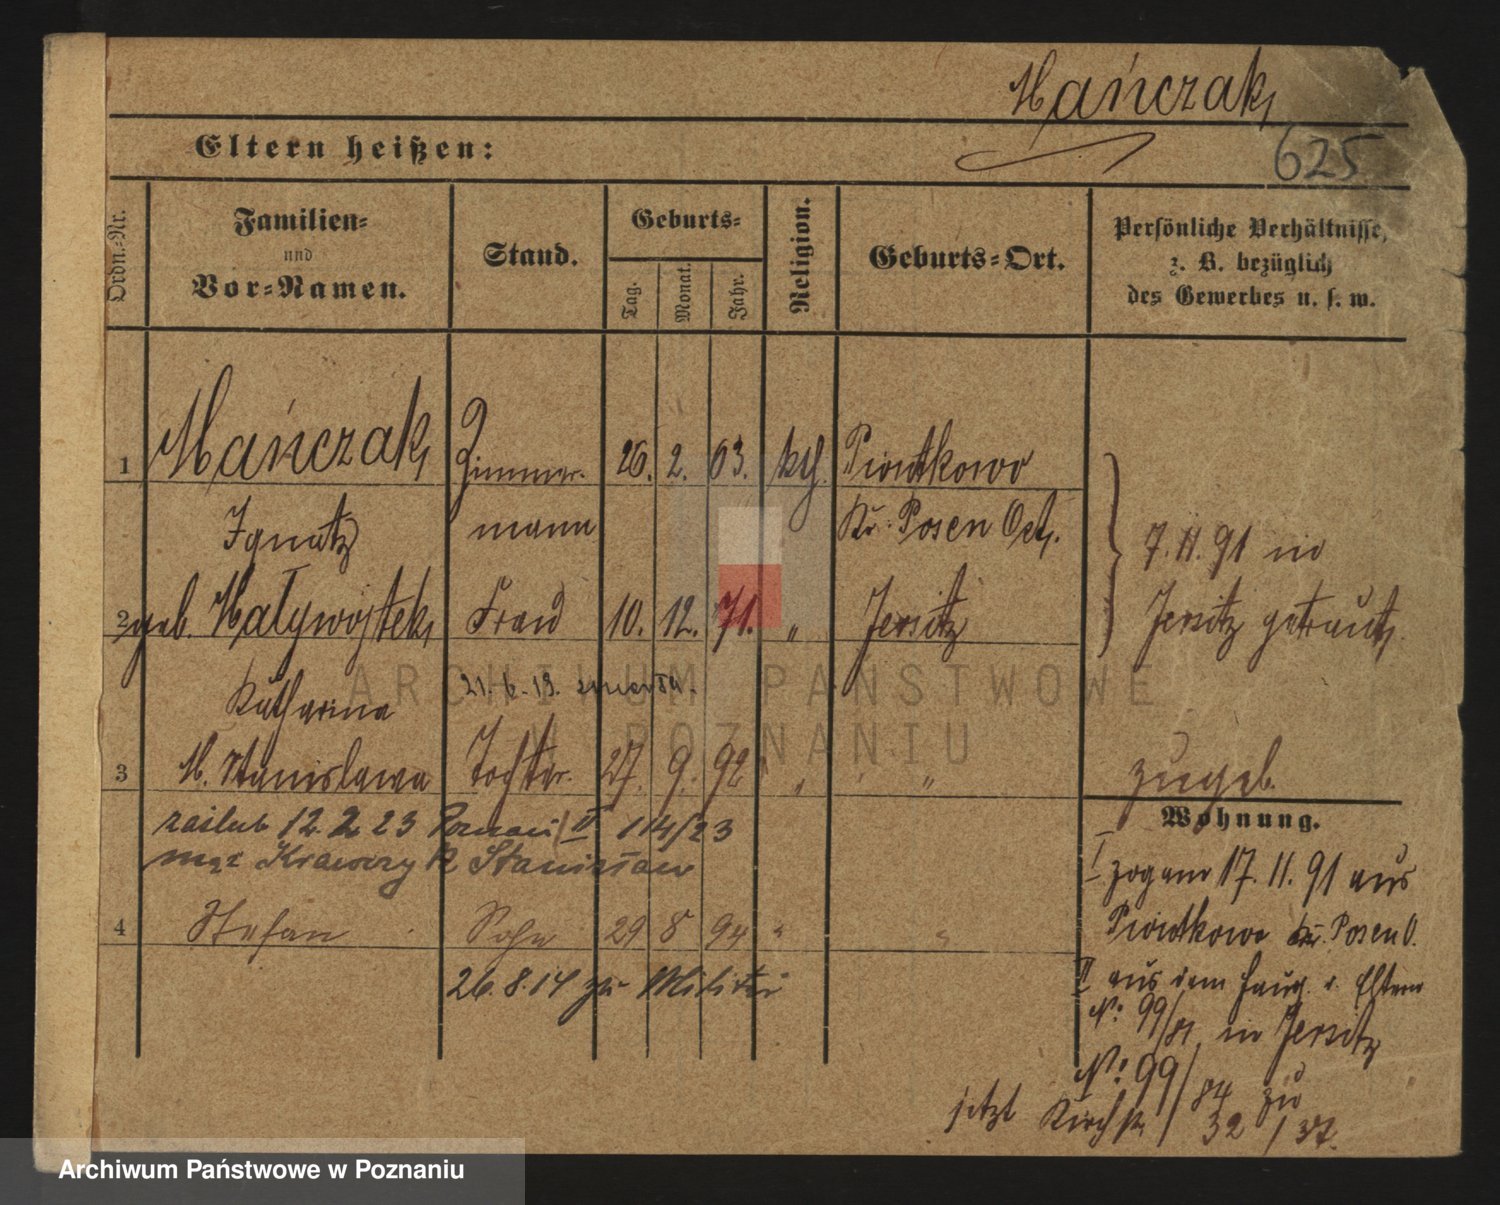 Mańczak,
625
Eltern heißen:
Ordn.-Nr.
Familien-
und
Vor-Namen.
Stand.
Geburts-
Tag.
Monat.
Jahr.
Religion.
Geburts-Ort.
Persönliche Verhältnisse,
z. B. bezüglich
des Gewerbes u. s. w.
1 Mańczak, Zimmer- 26. 2. 63. Piontkowo
Ignatz mann Kr. Posen Ost,
7. 11. 91 in
2 geb. Maływojtek, Frau 10. 12. 71. " Jersitz
Jersitz getraut,
Katharina 21. 6. 19. zmarła.
3 M. Stanisława Tochter. 27. 9. 92 " "
zugeb.
zaślub 12.2.23 Poznań II 114/23
mąż Krawczyk Stanisław
4 Stefan Sohn 29 8 94 " "
26.8.14 zu Militär
Wohnung.
I zogen 17. 11. 91 aus
Piontkowo Kr. Posen O.
II aus dem d. Eltern
No 99/81 in Jersitz
No 99/84 zu
jetzt Kirchstr. 32 / 37.
ARCHIWUM PAŃSTWOWE
W POZNANIU
Archiwum Państwowe w Poznaniu